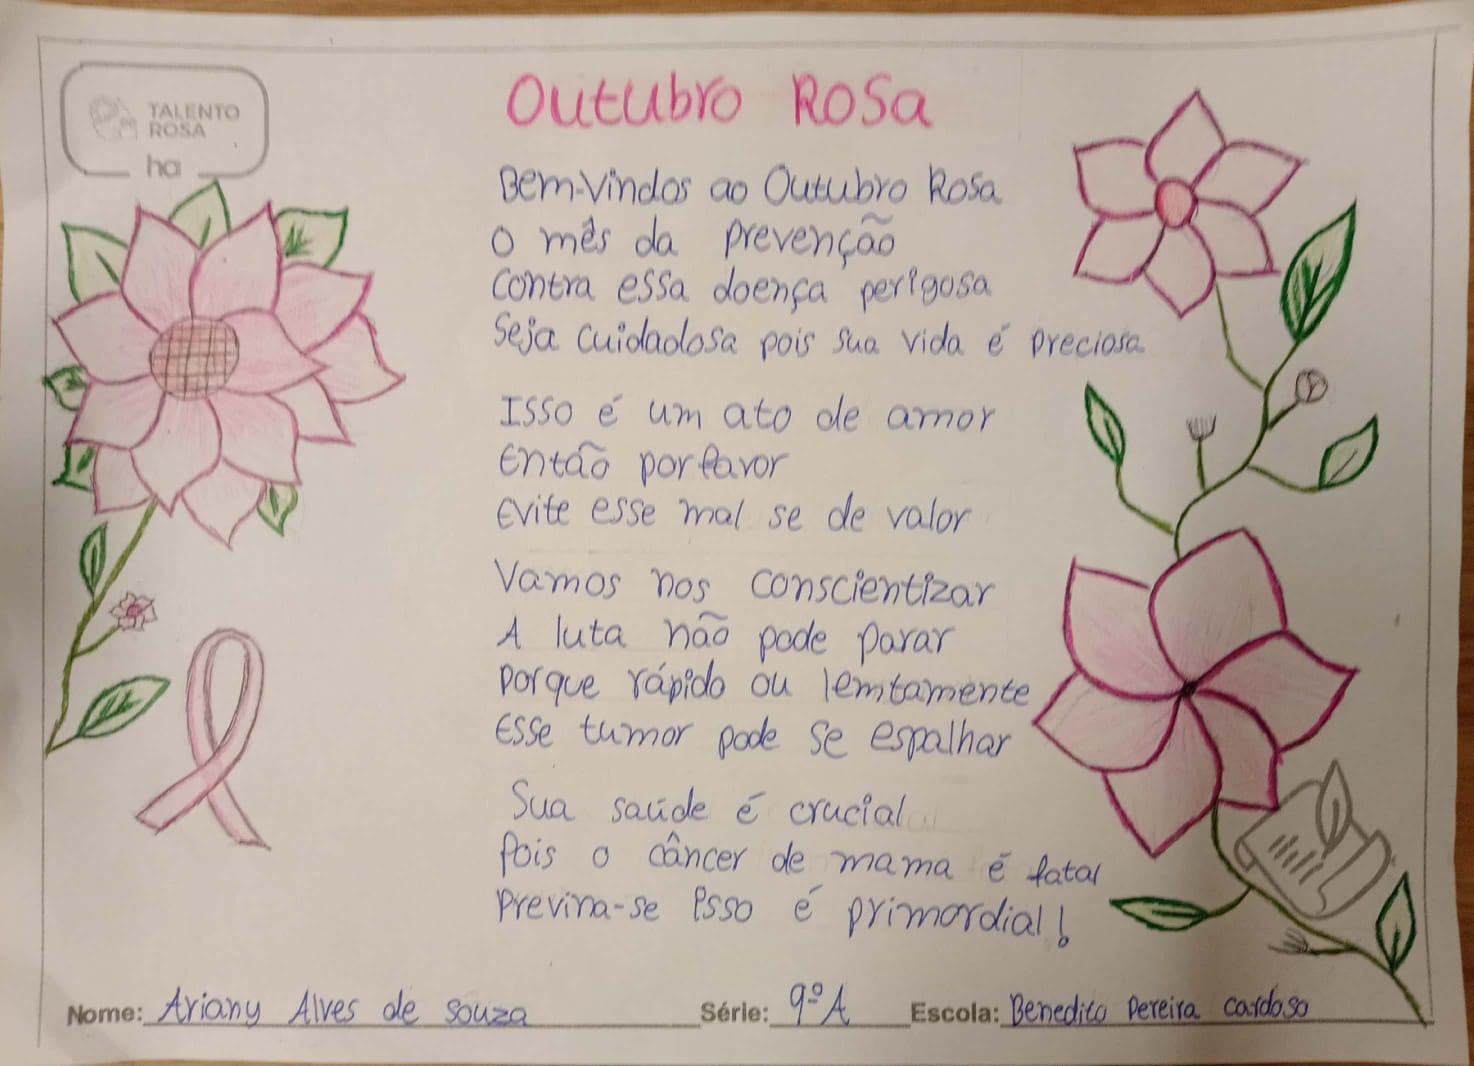 TALENTO
ROSA
ha
Outubro Rosa
Bem-Vindos ao Outubro Rosa
O mês da prevenção
contra essa doença perigosa
Seja cuidadosa pois sua vida é preciosa
Isso é um ato de amor
Então por favor
Evite esse mal se de valor
Vamos nos conscientizar
A luta não pode parar
Porque rápido ou lemtamente
Esse tumor pode se espalhar
Sua saúde é crucial
Pois o câncer de mama é fatal
Previna-se isso é primordial!
Nome: Ariany Alves de Souza Série: 9º A Escola: Benedito Pereira Cardoso